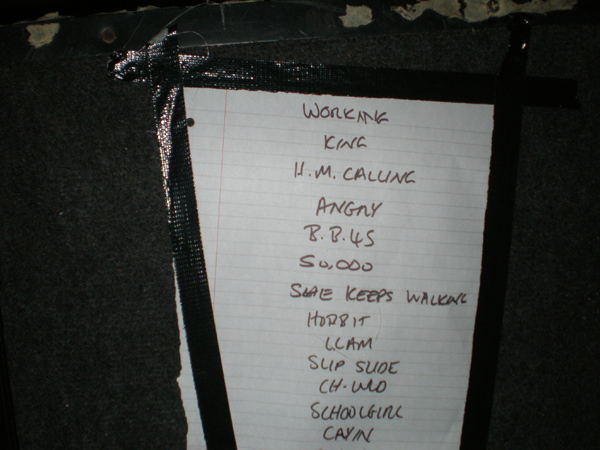 WORKING
KING
H.M. CALLING
ANGRY
B.B.45
50,000
SHE KEEPS WALKING
HOBBIT
LLAM
SLIP SLIDE
CH-WLD
SCHOOLGIRL
CAYIN